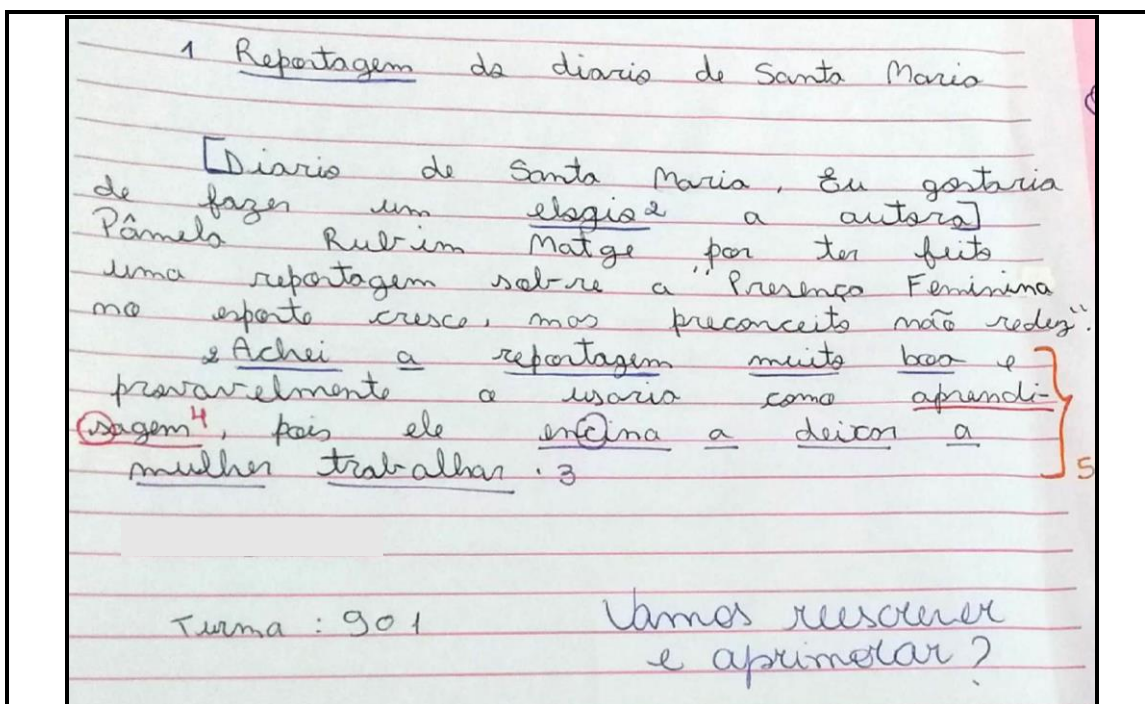 1 Reportagem do diario de Santa Maria
[Diario de Santa Maria, Eu gostaria
de fazer um elogio2 a autora]
Pâmela Rubim Matge por ter feito
uma reportagem sobre a "Presença Feminina
no esporte cresce, mas preconceito não redez".
2 Achei a reportagem muito boa e
provavelmente a usaria como aprendi-
sagem4, pois ele encina a deixar a
mulher trabalhar. 3
5
Turma: 901
Vamos reescrever
e aprimorar?